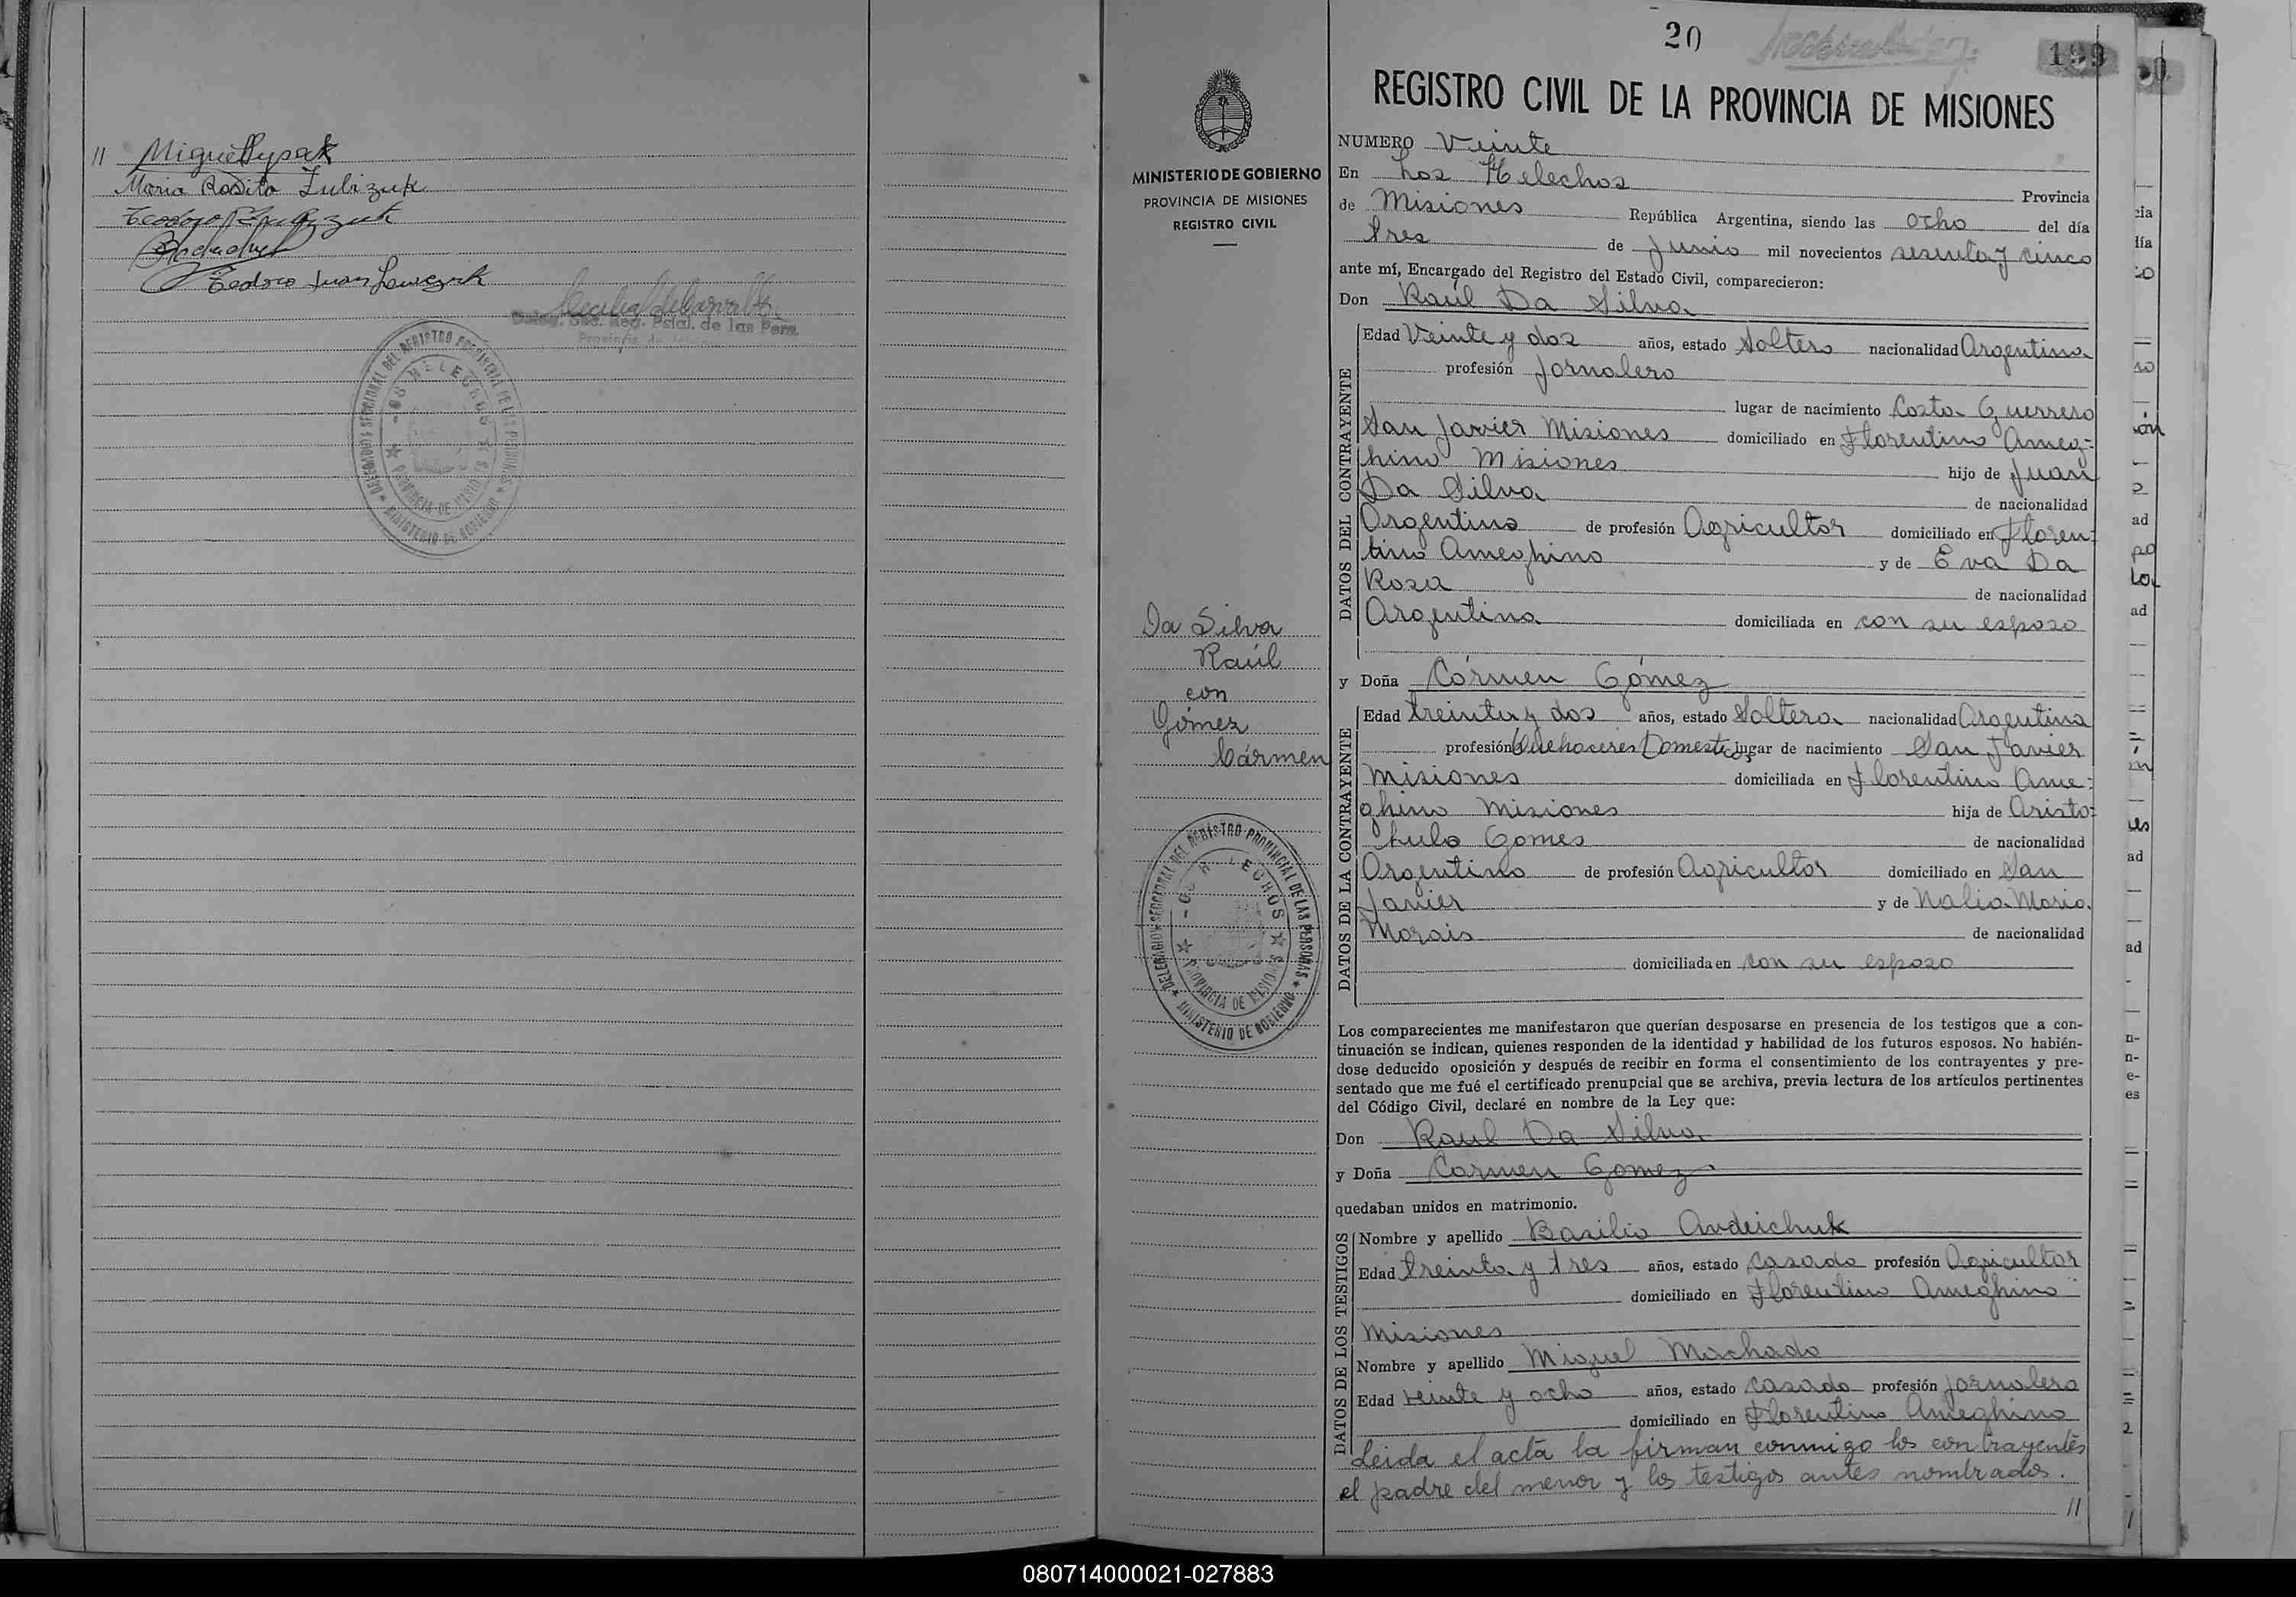 // Miguel Rysak
Maria Rosita Zubizuk
Teodoro Juan
20
199
REGISTRO CIVIL DE LA PROVINCIA DE MISIONES
MINISTERIO DE GOBIERNO
PROVINCIA DE MISIONES
REGISTRO CIVIL
NUMERO Veinte
En Los Helechos Provincia
de Misiones República Argentina, siendo las ocho del día
tres de Junio mil novecientos sesenta y cinco
ante mí, Encargado del Registro del Estado Civil, comparecieron:
Don Raúl Da Silva
DATOS DEL CONTRAYENTE
Edad Veinte y dos años, estado Soltero nacionalidad Argentina
profesión Jornalero
lugar de nacimiento Costa Guerrero
San Javier Misiones domiciliado en Florentino Ameg=
hino Misiones hijo de Juan
Da Silva de nacionalidad
Argentino de profesión Agricultor domiciliado en Floren=
tino Ameghino y de Eva Da
Rosa de nacionalidad
Argentina domiciliada en con su esposo
Da Silva
Raúl
con
Gómez
Cármen
y Doña Cármen Gómez
DATOS DE LA CONTRAYENTE
Edad treinta y dos años, estado Soltera nacionalidad Argentina
profesión Quehaceres Domesticos lugar de nacimiento San Javier
Misiones domiciliada en Florentino Ame=
ghino Misiones hija de Aristo=
tulo Gomes de nacionalidad
Argentino de profesión Agricultor domiciliado en San
Javier y de Nalia Maria
Morais de nacionalidad
domiciliada en con su esposo
DELEGACION SECCIONAL DEL REGISTRO PROVINCIAL DE LAS PERSONAS
MINISTERIO DE GOBIERNO
PROVINCIA DE MISIONES
Los comparecientes me manifestaron que querían desposarse en presencia de los testigos que a con-
tinuación se indican, quienes responden de la identidad y habilidad de los futuros esposos. No habién-
dose deducido oposición y después de recibir en forma el consentimiento de los contrayentes y pre-
sentado que me fué el certificado prenupcial que se archiva, previa lectura de los artículos pertinentes
del Código Civil, declaré en nombre de la Ley que:
Don Raul Da Silva
y Doña Carmen Gomez
quedaban unidos en matrimonio.
DATOS DE LOS TESTIGOS
Nombre y apellido Basilio Andreichuk
Edad treinta y tres años, estado casado profesión Agricultor
domiciliado en Florentino Ameghino
Misiones
Nombre y apellido Miguel Machado
Edad veinte y ocho años, estado casado profesión Jornalero
domiciliado en Florentino Ameghino
Leida el acta la firman conmigo los contrayentes
el padre del menor y los testigos antes nombrados.
//
080714000021-027883